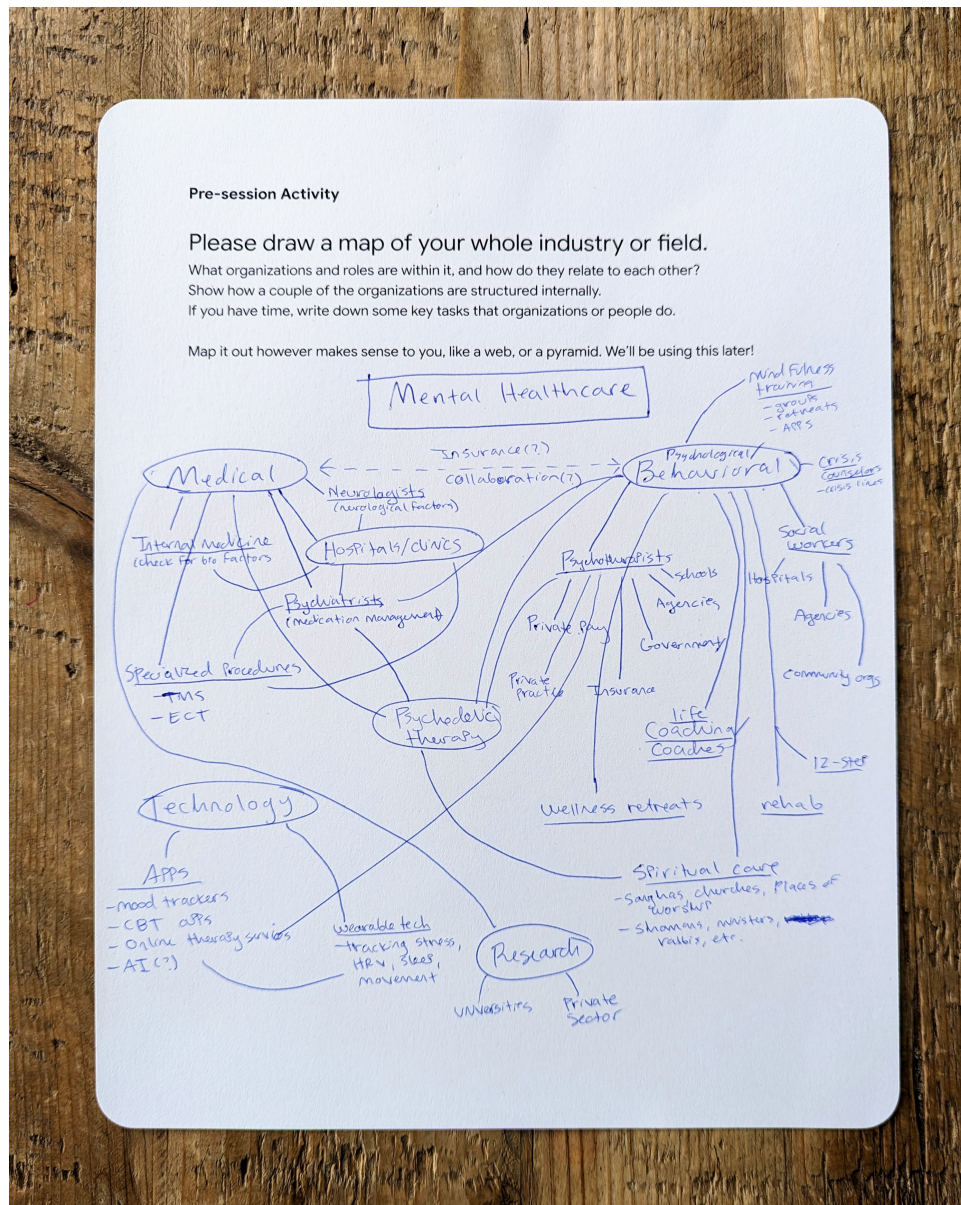 Pre-session Activity
Please draw a map of your whole industry or field.
What organizations and roles are within it, and how do they relate to each other?
Show how a couple of the organizations are structured internally.
If you have time, write down some key tasks that organizations or people do.
Map it out however makes sense to you, like a web, or a pyramid. We'll be using this later!
Mental Healthcare
Mindfulness
training
- groups
- retreats
- APPS
Medical
Insurance(?)
collaboration(?)
Psychological/
Behavioral
Crisis
counselors
- crisis lines
Neurologists
(neurological factors)
Internal medicine
(check for bio factors
Hospitals/clinics
Psychiatrists
(medication management
Specialized Procedures
- TMS
- ECT
Psychedelic
therapy
Psychotherapists
Schools
Agencies
Government
Private Pay
Private
Practice
Insurance
Social
workers
Hospitals
Agencies
Community orgs
life
Coaching
Coaches
12-Step
Wellness retreats
rehab
Spiritual care
- Sanghas, churches, Places of
worship
- Shamans, ministers,
rabbis, etc.
Technology
APPS
- mood trackers
- CBT apps
- Online therapy services
- AI(?)
wearable tech
- tracking stress,
HRV, sleep,
movement
Research
universities
Private
Sector